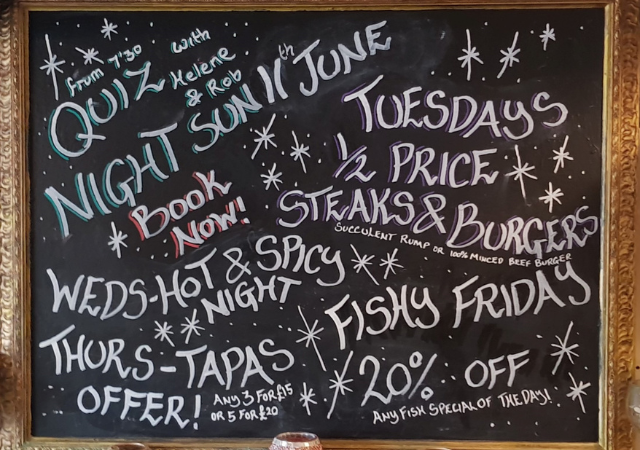 From 7'30 with
Helene
& Rob
QUIZ
NIGHT SUN 11th JUNE
BOOK
NOW!
TUESDAYS
1/2 PRICE
STEAKS & BURGERS
SUCCULENT RUMP OR 100% MINCED BEEF BURGER
WEDS-HOT & SPICY
NIGHT
THURS-TAPAS
OFFER! ANY 3 FOR £15
OR 5 FOR £20
FISHY FRIDAY
20% OFF
ANY FISH SPECIAL OF THE DAY!